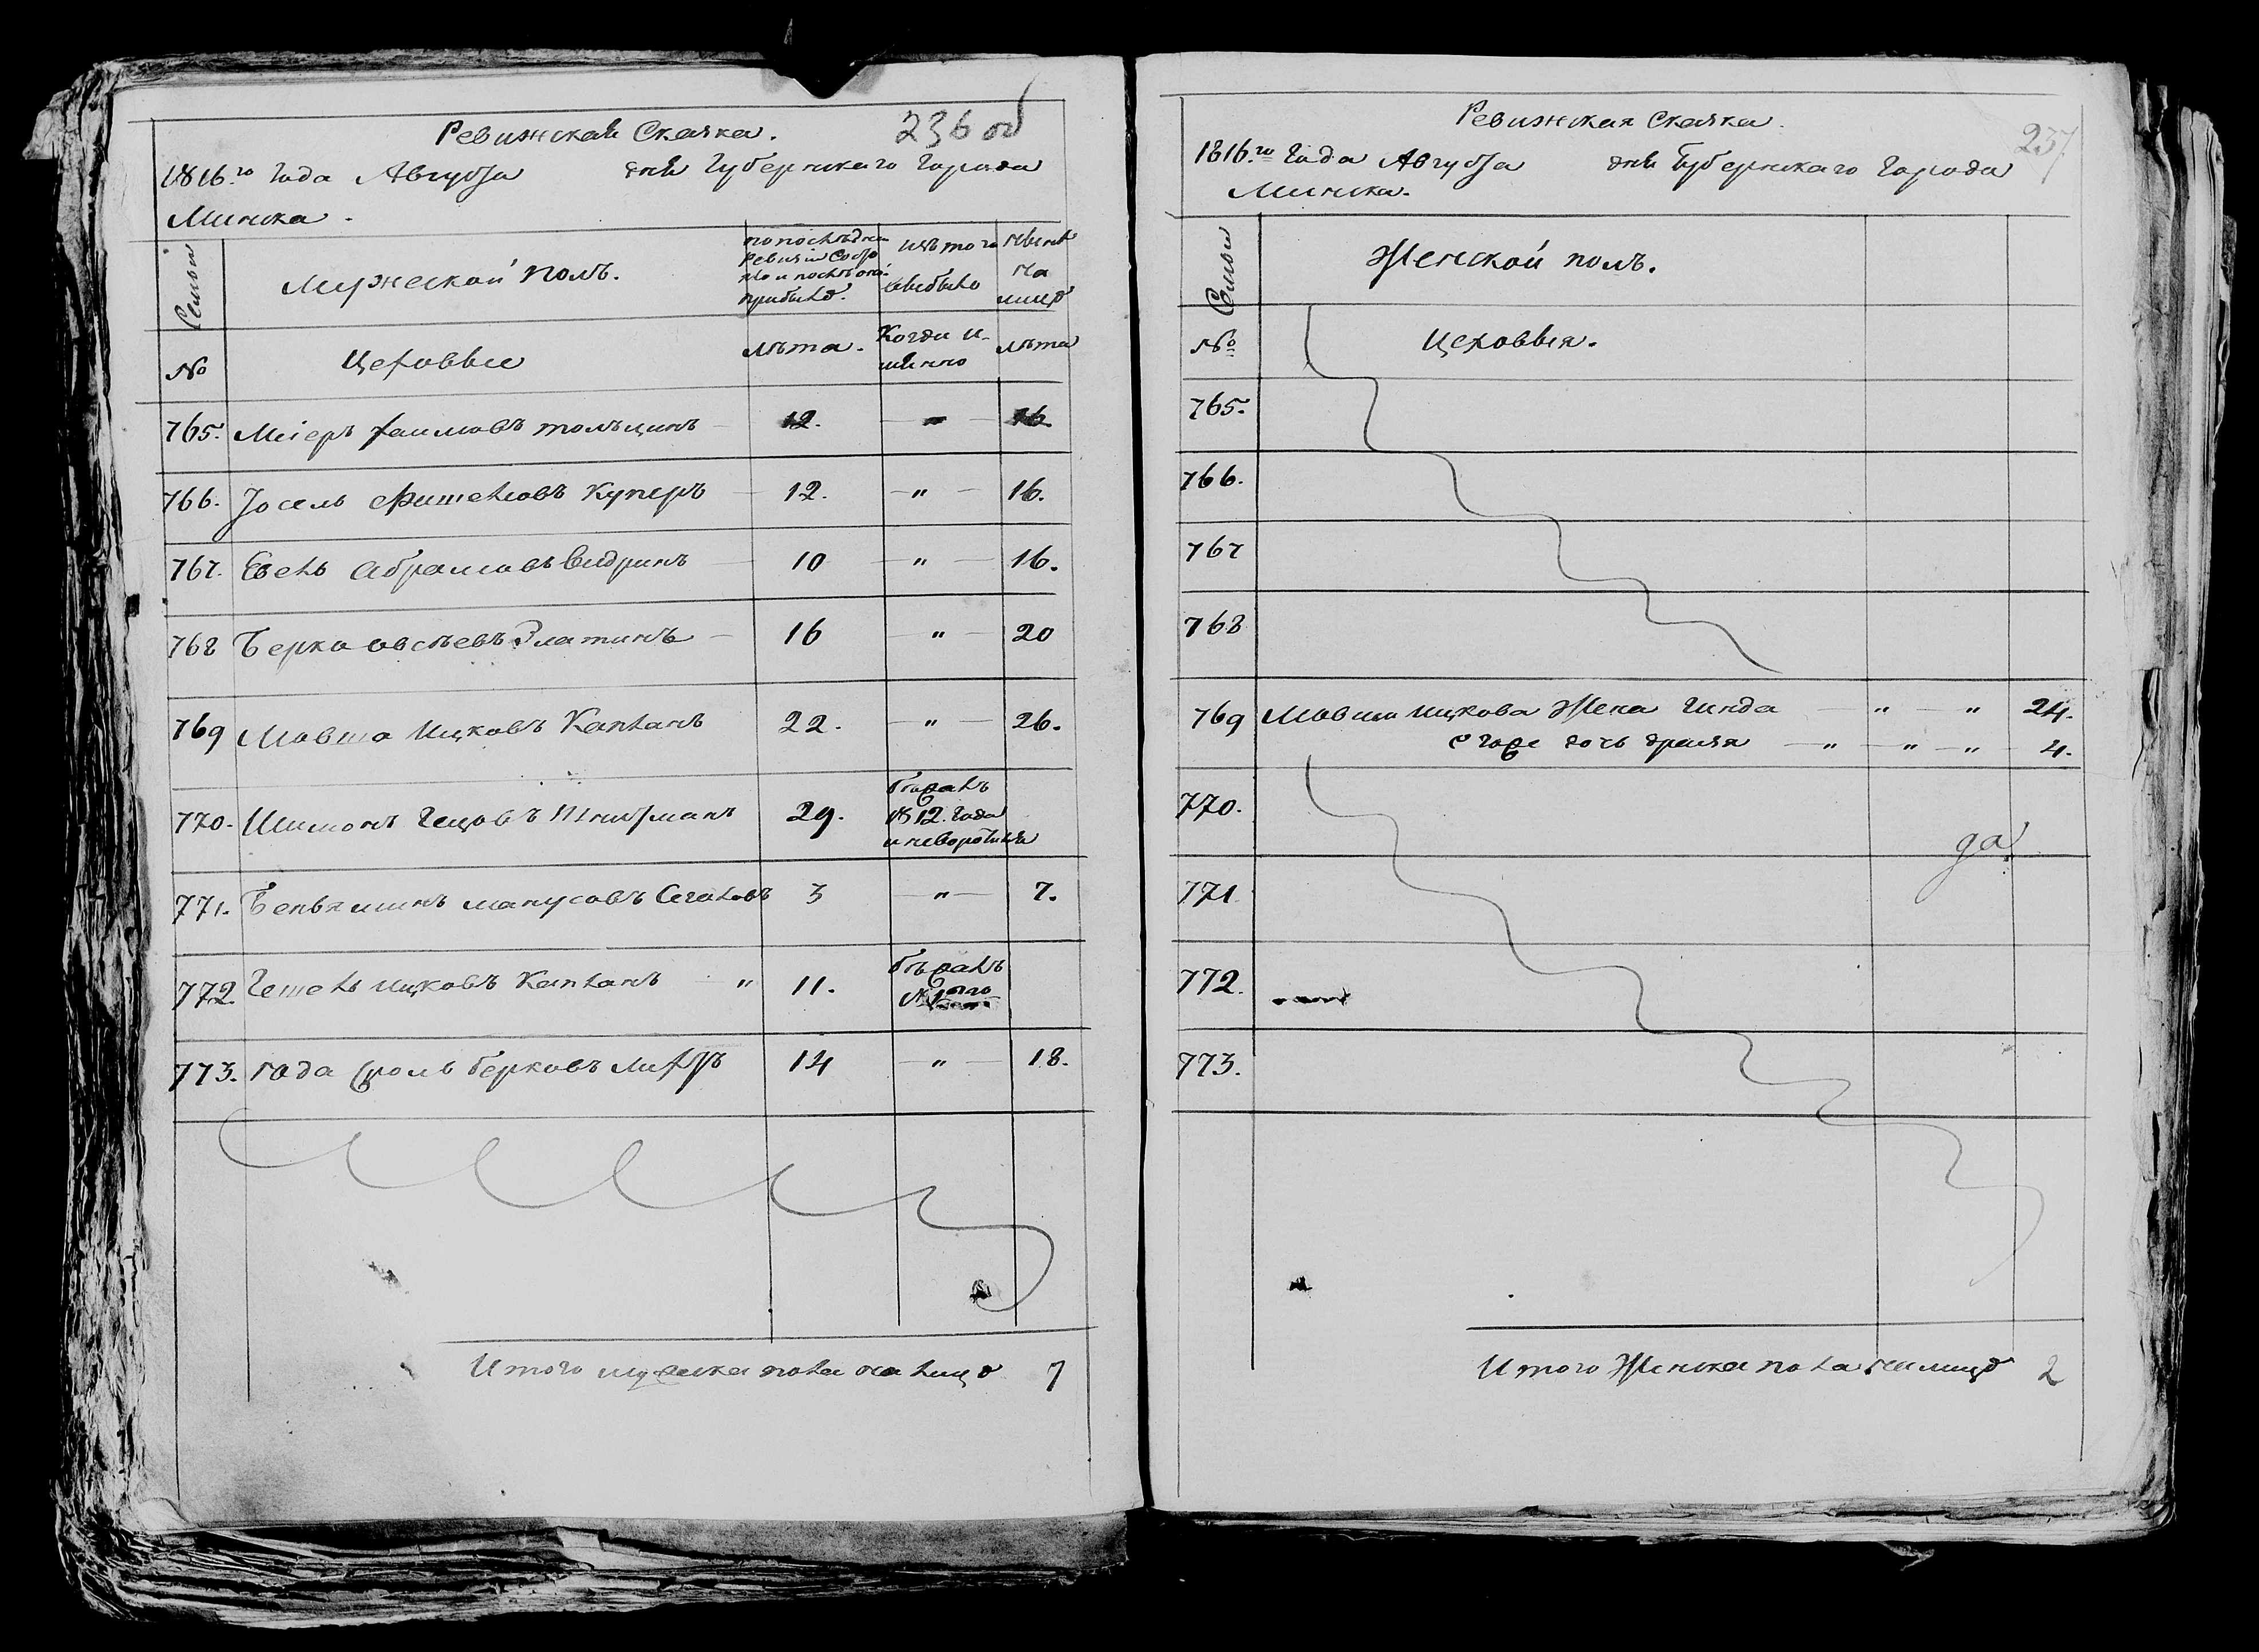 Ревижская Скаска.
236 об
1816.го Года Августа дня Губернскаго Города
Минска.
Семьи
Мужеской полъ.
по последней
Ревизіи Состо
яло и после оной
прибыло.
изъ того
выбыло
ныне
на
лицо
№
Цеховые
лѣта.
Когда и-
менно
лѣта
765. Меіеръ Хаимовъ 12. " 16.
766. Іосель Фишелювъ Куперъ 12. " 16.
767. Евель Абрамовъ Видринъ 10 " 16.
768 Берко Овсѣевъ Златинъ 16 " 20
769 Мовша Ицковъ Капланъ 22. " 26.
770. Шимонъ Гецовъ 29.
бежалъ
1812. года
и неворотился
771. Беньяминъ Манусовъ Сегаловъ 3 " 7.
772. Гешель Ицковъ Капланъ " 11.
бежалъ
773. Сроль Берковъ 14 " 18.
Итого мужеска пола на лицо 7
Ревижская Скаска.
237
1816.го Года Августа дня Губернскаго Города
Минска.
Семьи
Женской полъ.
№
Цеховыя.
765.
766.
767
768
769 Мовши Ицкова Жена Гинда " " 24.
дочь " " " 4.
770.
да
771
772.
773.
Итого Женска пола на лицо 2